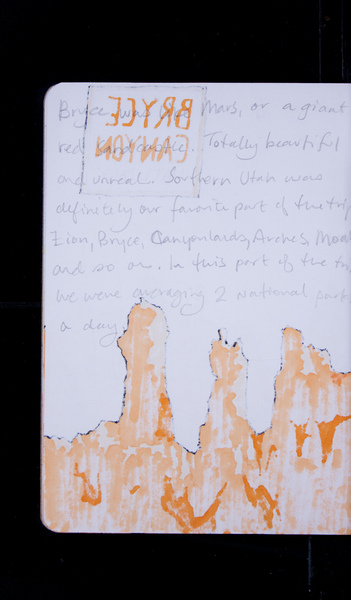 Bryce was like Mars, or a giant
red sandcastle. Totally beautiful
and unreal. Southern Utah was
definitely our favorite part of the trip
Zion, Bryce, Canyonlands, Arches, Moab
and so on. In this part of the trip
we were averaging 2 national parks
a day!
BRYCE
CANYON